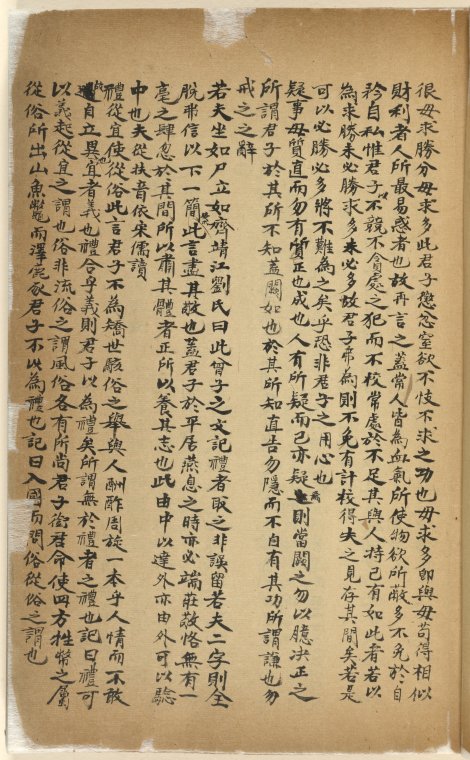 很毋求勝分毋求多此君子懲忿窒欲不忮不求之功也毋求多即與毋苟得相似
財利者人所最易惑者也故再言之蓋常人皆為血氣所使物欲所蔽多不免於自
矜自私惟君子不競不貪處之犯而不校常處於不足其與人持己有如此者若以
為求勝未必勝求多未必多故君子弗為則不免有計較得失之見存其間矣若是
可以必勝必多將不難為之矣乎恐非君子之用心也
疑事毋質直而勿有質正也成也人有所疑而己亦疑焉則當闕之勿以臆決正之
所謂君子於其所不知蓋闕如也於其所知直告勿隱而不自有其功所謂謙也勿
戒之之辭
若夫坐如尸立如齊靖江劉氏曰此曾子之文記禮者取之非誤留若夫二字則全
脫弗信以下一簡此言盡其敬也蓋君子於平居燕息之時亦必端莊敬恪無有一
毫之肆忽於其間所以肅其體者正所以養其志也此由中以達外亦由外可以驗
中也夫從扶音依宋儒讀
禮從宜使從俗此言君子不為矯世駭俗之舉與人酬酢周旋一本乎人情而不敢
自立異宜者義也禮合乎義則君子以為禮矣所謂無於禮者之禮也記曰禮可
以義起從宜之謂也俗非流俗之謂風俗各有所尚君子銜君命使四方牲幣之屬
從俗所出山魚鼈而澤鹿豕君子不以為禮也記曰入國而問俗從俗之謂也